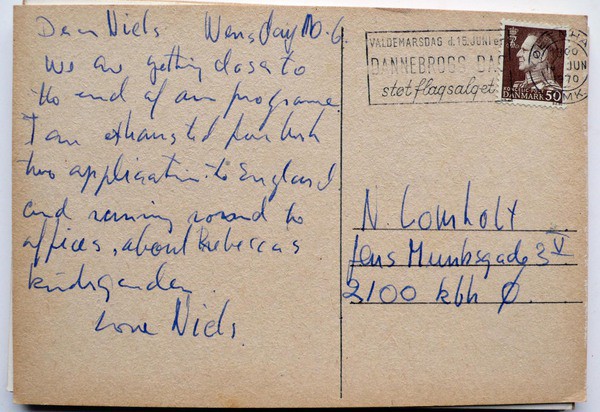 Dear Niels Wensday 10.6.
We are getting closer to
the end of our programe
I am exhausted
two application to England
and running round to
offices, about Rebeccas
kindergarden.
Love Niels.
VALDEMARSDAG d. 15. JUNI er
DANNEBROGS DAG
støt flagsalget
DANMARK 50
JUN
N. Lomholt
Jens Munksgade 3 V
2100 kbh Ø.